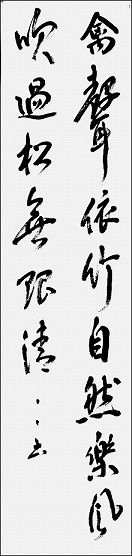 禽聲依竹自然樂風
吹過松無限清